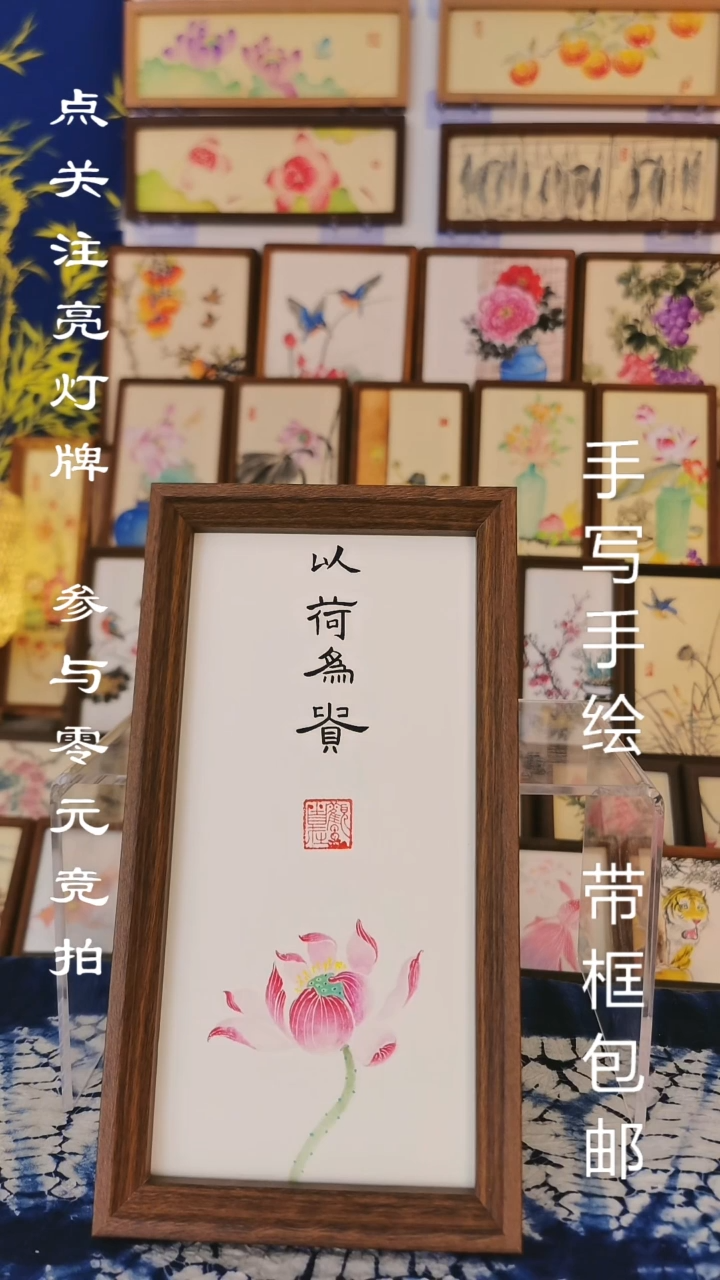 点关注亮灯牌 参与零元竞拍
以荷為貴
手写手绘 带框包邮